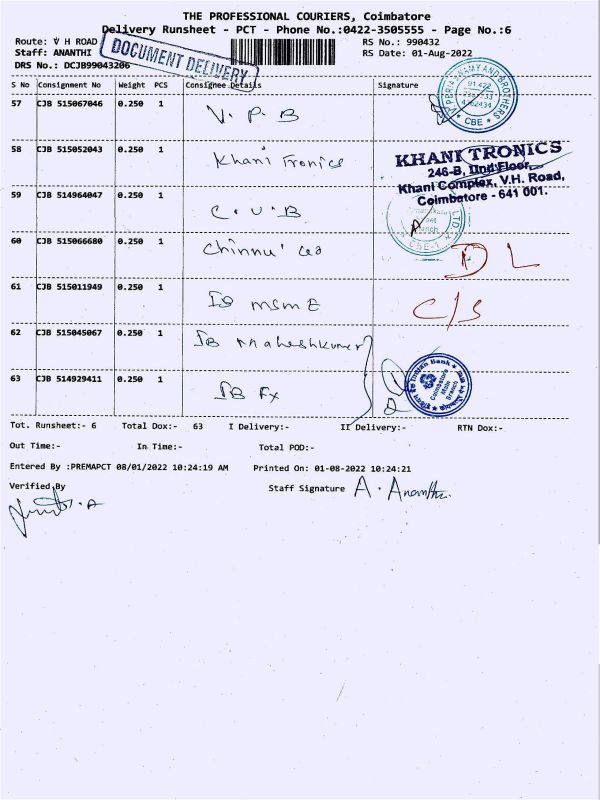 THE PROFESSIONAL COURIERS, Coimbatore
Delivery Runsheet - PCT - Phone No.:0422-3505555 - Page No.:6
Route: V H ROAD
RS No.: 990432
Staff: ANANTHI
RS Date: 01-Aug-2022
DRS No.: DCJB99043206
DOCUMENT DELIVERY
S No Consignment No Weight PCS Consignee Details Signature
57 CJB 515067046 0.250 1 V. P. B
CBE
58 CJB 515052043 0.250 1 Khani Tronics
KHANI TRONICS
246-B, IInd Floor,
Khani Complex, V.H. Road,
Coimbatore - 641 001.
59 CJB 514964047 0.250 1 C. U. B
CBE-1
60 CJB 515066680 0.250 1 Chinnu' DL
61 CJB 515011949 0.250 1 IB MSME C/S
62 CJB 515045067 0.250 1 IB Maheshkumar
63 CJB 514929411 0.250 1 IB Fx
Indian Bank
Coimbatore
Main
Branch
Tot. Runsheet:- 6 Total Dox:- 63 I Delivery:- II Delivery:- RTN Dox:-
Out Time:- In Time:- Total POD:-
Entered By :PREMAPCT 08/01/2022 10:24:19 AM Printed On: 01-08-2022 10:24:21
Verified By
Staff Signature A. Ananthi.